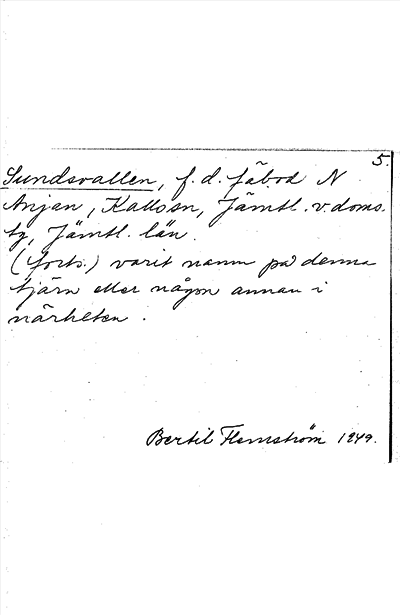 5.
Sundsvallen, f.d. fäbod N
Anjan, Kall sn, Jämtl. v. doms.
tg, Jämtl. län.
(forts.) varit namn på denna
tjärn eller någon annan i
närheten.
Bertil Flemström 1949.